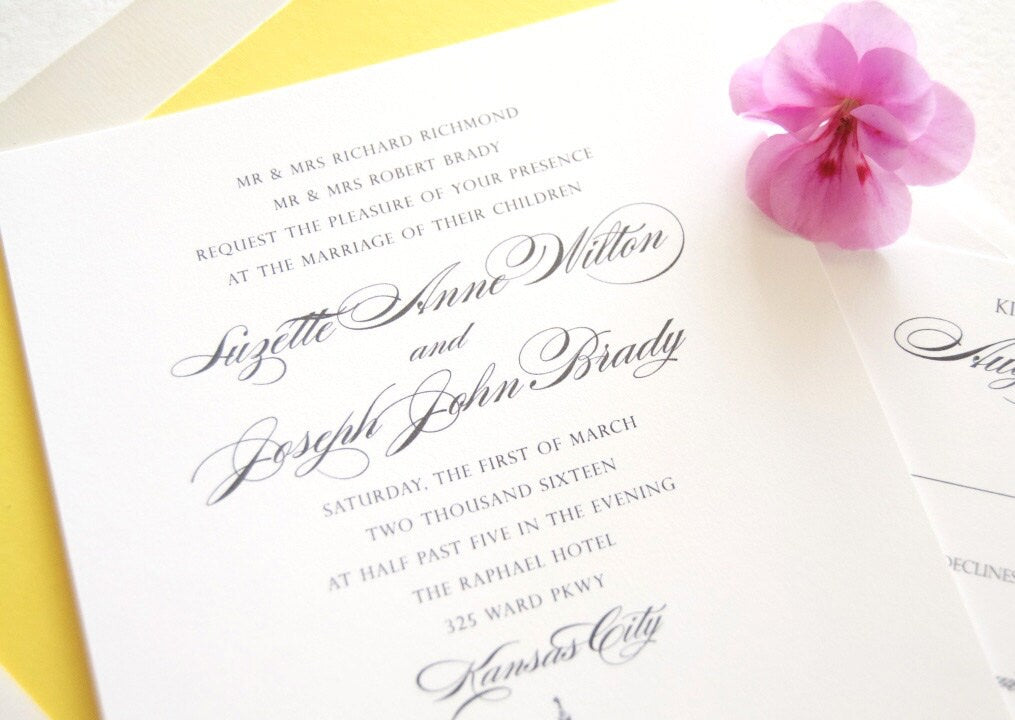 MR & MRS RICHARD RICHMOND
MR & MRS ROBERT BRADY
REQUEST THE PLEASURE OF YOUR PRESENCE
AT THE MARRIAGE OF THEIR CHILDREN
Suzette Anne Wilton
and
Joseph John Brady
SATURDAY, THE FIRST OF MARCH
TWO THOUSAND SIXTEEN
AT HALF PAST FIVE IN THE EVENING
THE RAPHAEL HOTEL
325 WARD PKWY
Kansas City
KI
Aug
DECLINES